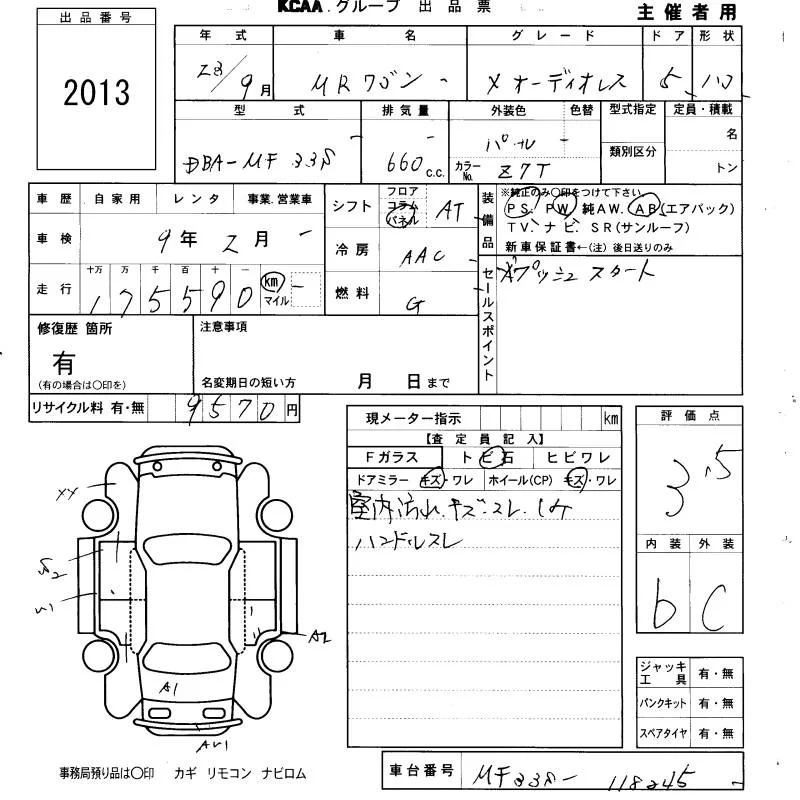 KCAA.グループ 出品票
主催者用
出品番号
2013
年式 車名 グレード ドア 形状
23/9月 MRワゴン メオーディオレス 5 ハコ
型式 排気量 外装色 色替 型式指定 定員・積載
DBA-MF33S 660c.c. パール カラーNo. Z7T 類別区分 名
トン
車歴 自家用 レンタ 事業.営業車
車検 9年2月
走行 十万 万 千 百 十 一 km マイル
175590
シフト フロア コラム パネル AT
冷房 AAC
燃料 G
装備品 ※純正のみ○印をつけて下さい
PS. PW. 純AW. AB(エアバック)
TV. ナビ. SR(サンルーフ)
新車保証書←(注)後日送りのみ
セールスポイント
プッシュスタート
修復歴 箇所
有
(有の場合は○印を)
注意事項
名変期日の短い方 月 日まで
リサイクル料 有・無 9570円
現メーター指示 km
【査定員記入】
Fガラス トビ石 ヒビワレ
ドアミラー キズ・ワレ ホイール(CP) キズ・ワレ
室内汚れ.キズ.スレ.シミ
ハンドルスレ
評価点
3.5
内装 外装
b C
XX
S2
U1
A2
A1
AU1
ジャッキ工具 有・無
パンクキット 有・無
スペアタイヤ 有・無
事務局預り品は○印 カギ リモコン ナビロム
車台番号 MF33S- 118245